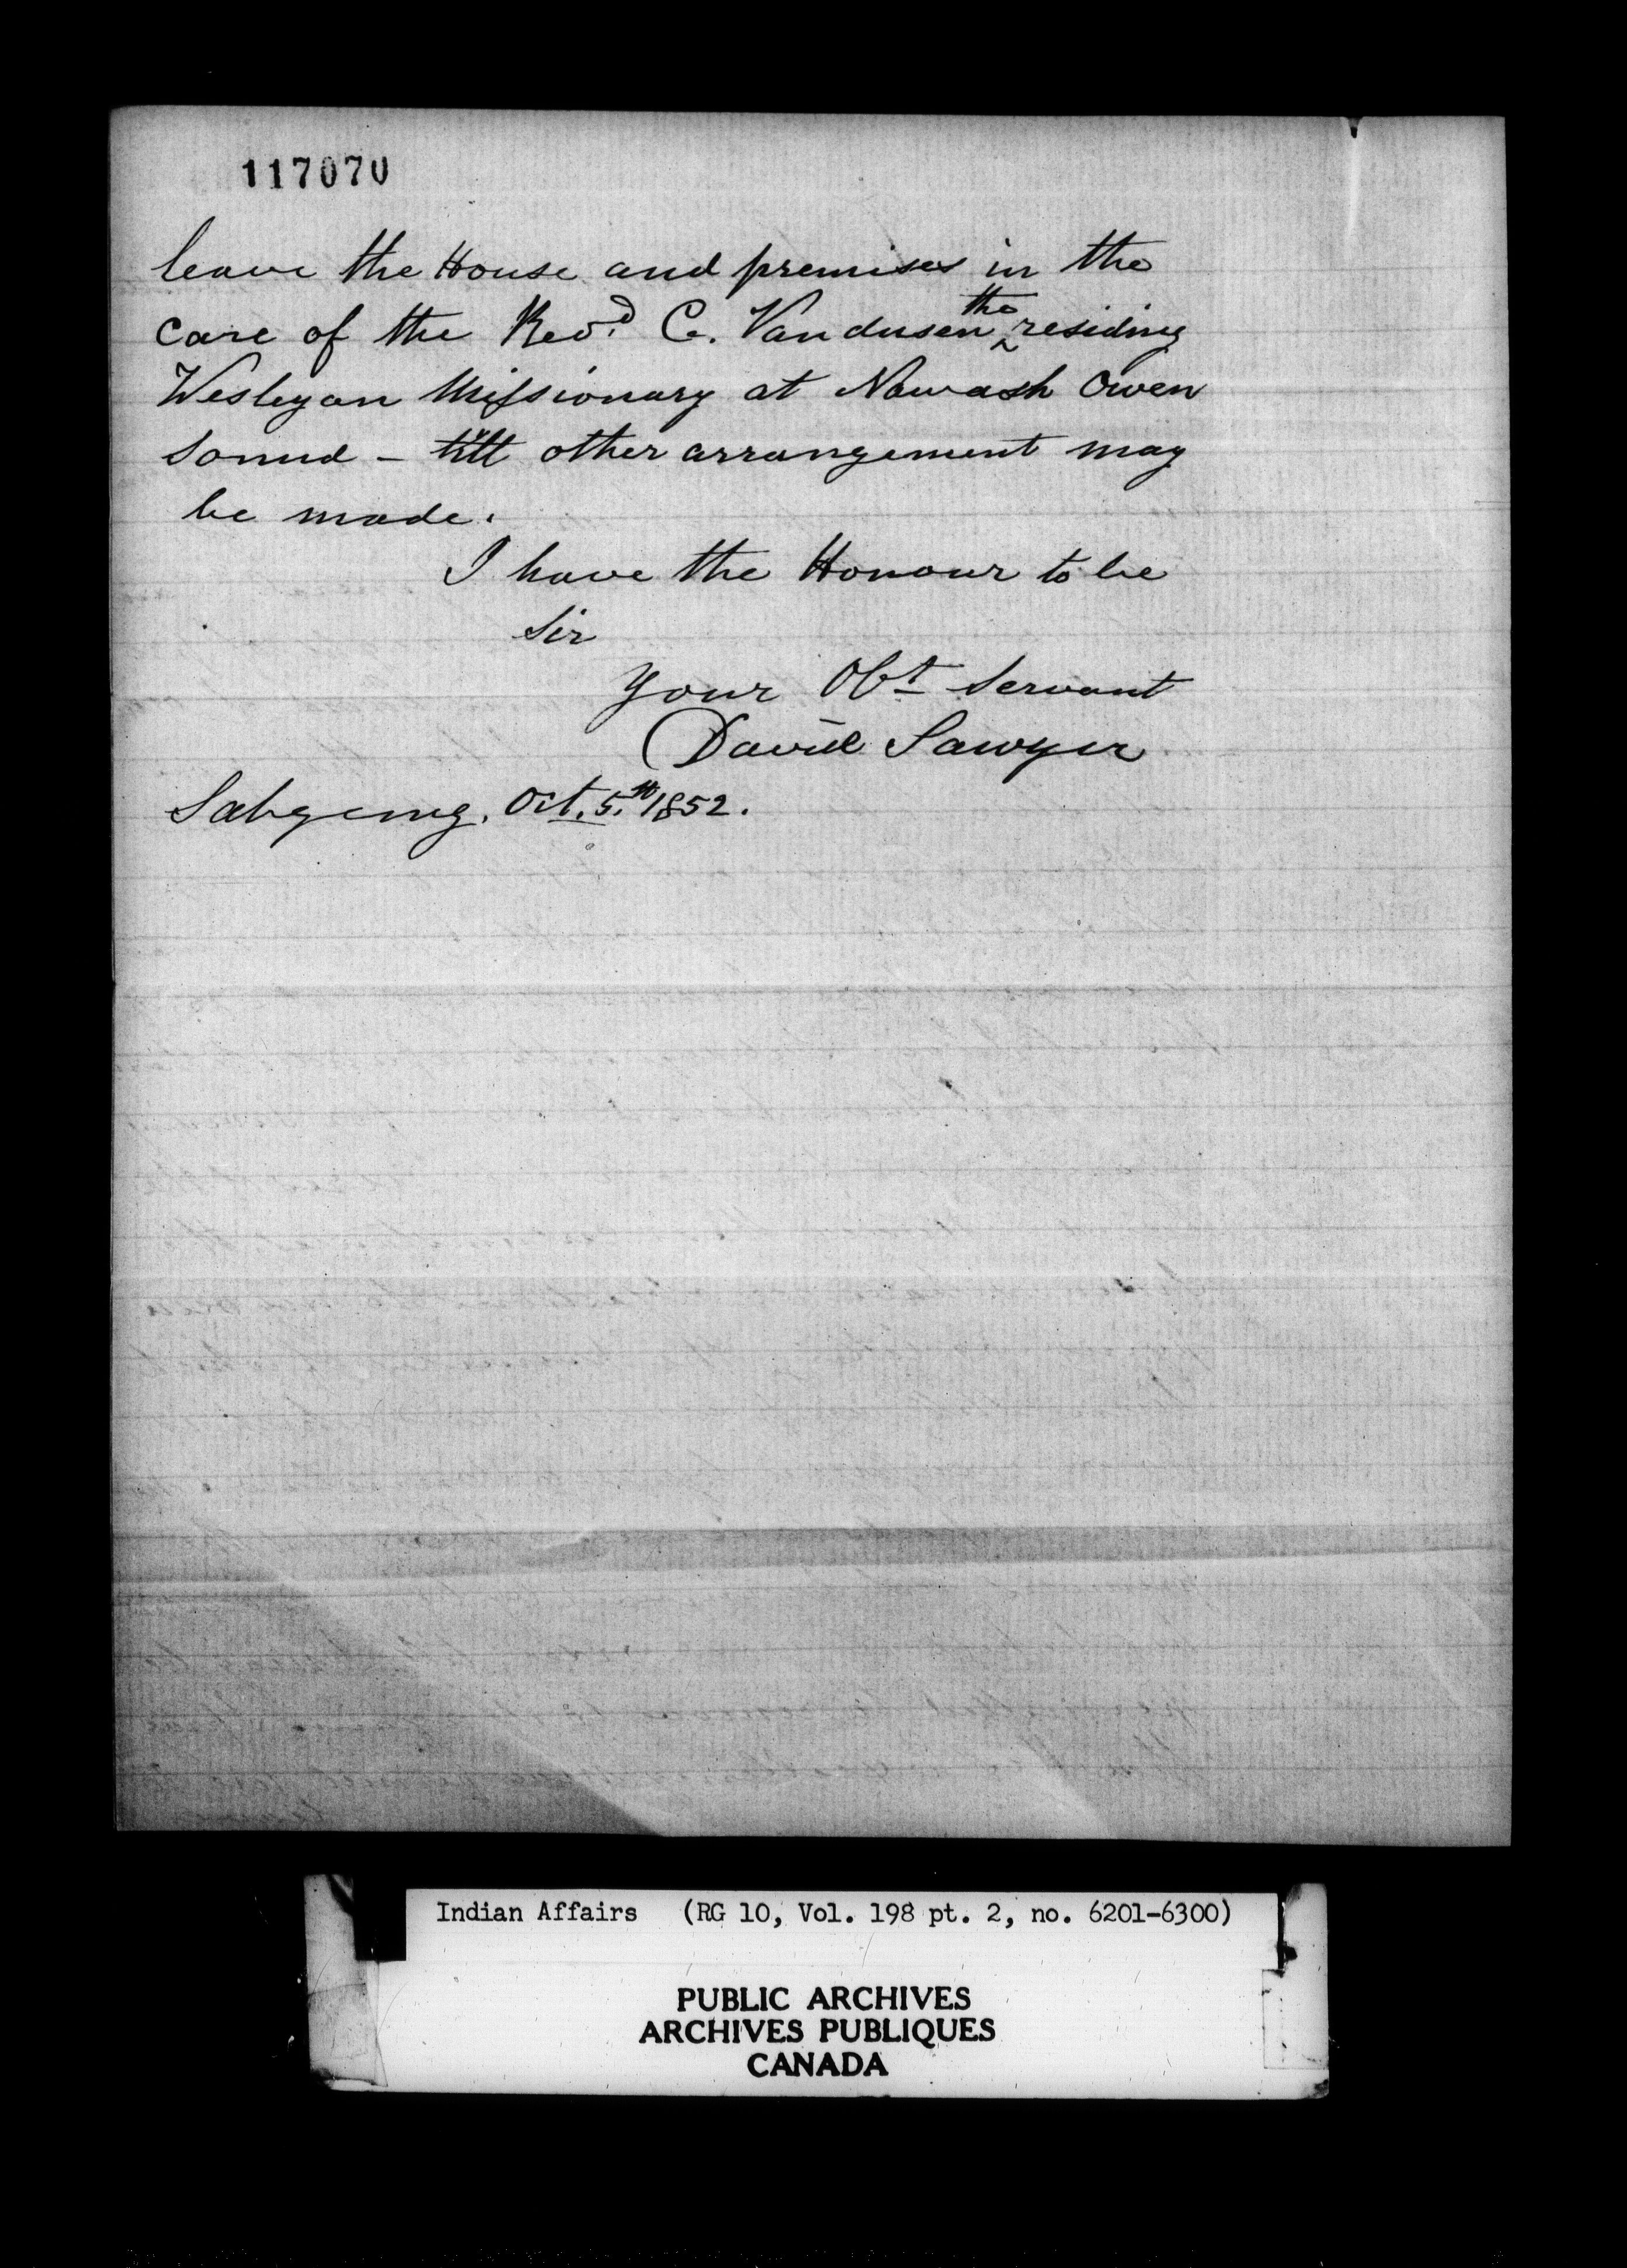 117070
leave the House and premises in the
care of the Revd. C. Vandusen the residing
Wesleyan Missionary at Nawash Owen
Sound - till other arrangement may
be made.
I have the Honour to be
Sir
Your Obt Servant
David Sawyer
Oct. 5.th 1852.
Indian Affairs (RG 10, Vol. 198 pt. 2, no. 6201-6300)
PUBLIC ARCHIVES
ARCHIVES PUBLIQUES
CANADA